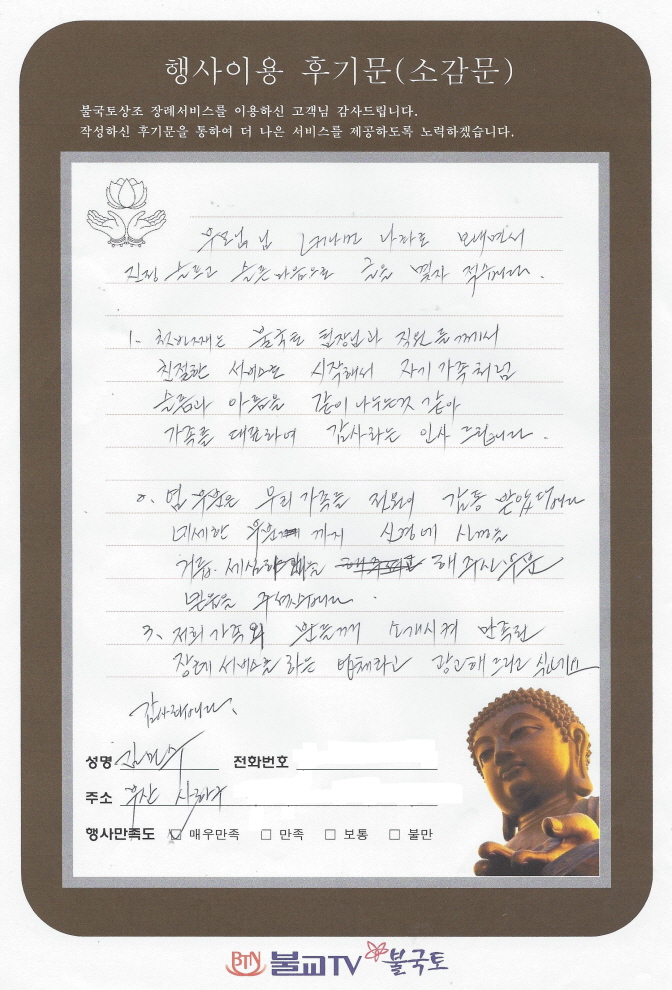 행사이용 후기문(소감문)
불국토상조 장례서비스를 이용하신 고객님 감사드립니다.
작성하신 후기문을 통하여 더 나은 서비스를 제공하도록 노력하겠습니다.
부모님 님 머나먼 나라로 보내면서
진정 슬프고 슬픈 마음으로 글을 몇자 적습니다.
1. 첫번재는 불국토 팀장님과 직원들께서
친절한 서비스로 시작해서 자기 가족처럼
슬픔과 아픔을 같이 나누는것 같아
가족를 대표하여 감사하는 인사 드립니다.
2. 염 부분은 우리 가족들 전원이 감동 받았답니다
미세한 부분까지 신경에 신경을
거듭. 세심함을 해주신부분
믿음을 주셨습니다.
3. 저희 가족와 분들께 소개시켜 만족된
장례 서비스를 하는 업체라고 광고해 드리고 싶네요
감사합니다.
성명 전화번호
주소 부산 사하구
행사만족도 ☑ 매우만족 □ 만족 □ 보통 □ 불만
BTN 불교TV 불국토